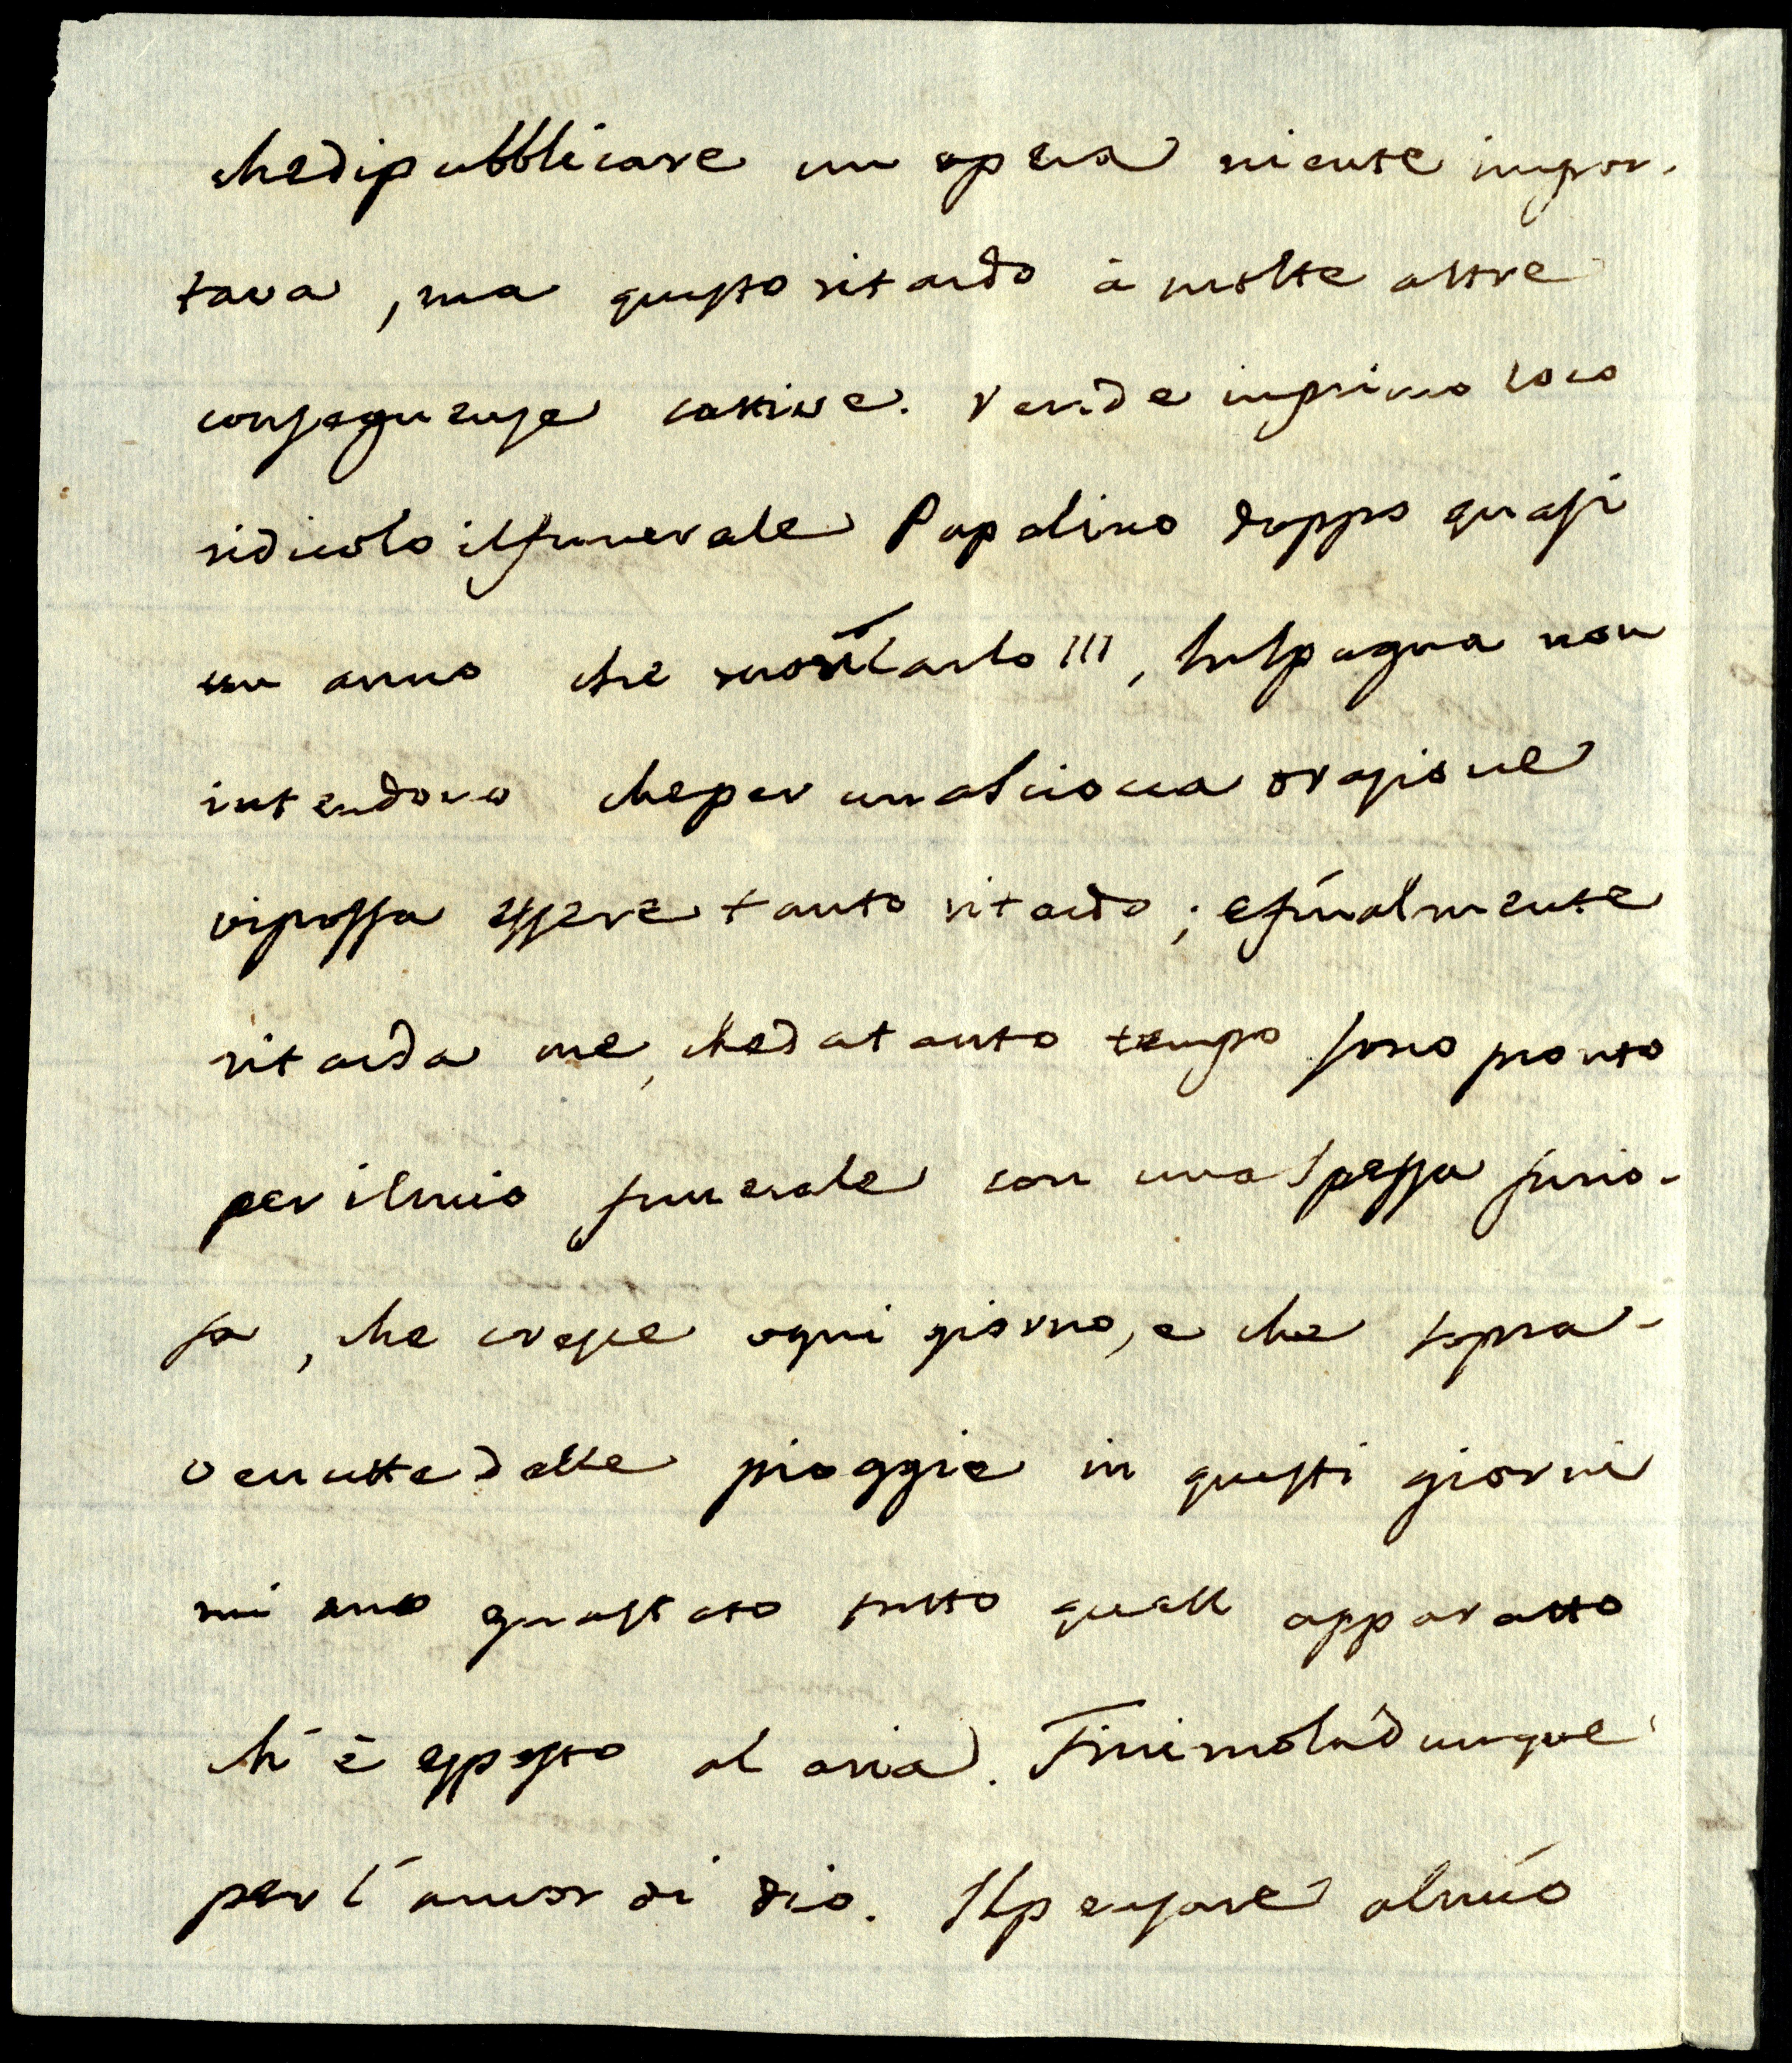 che di pubblicare un opera niente impor-
tava, ma questo ritardo à molte altre
conseguenze cattive. rende in primo loco
ridicolo il funerale Papalino doppo quasi
un anno che morì Carlo III, In Spagna non
intendono che per una sciocca orazione
vi possa essere tanto ritardo; e finalmente
ritarda me, che da tanto tempo sono pronto
per il mio funerale con una spessa furio-
sa, che cresce ogni giorno, e che sopra-
venutte delle pioggie in questi giorni
mi ano guastato tutto quell apparatto
ch' è esposto al aria. Finimola dunque
per l'amor di dio. Il pensare al mio